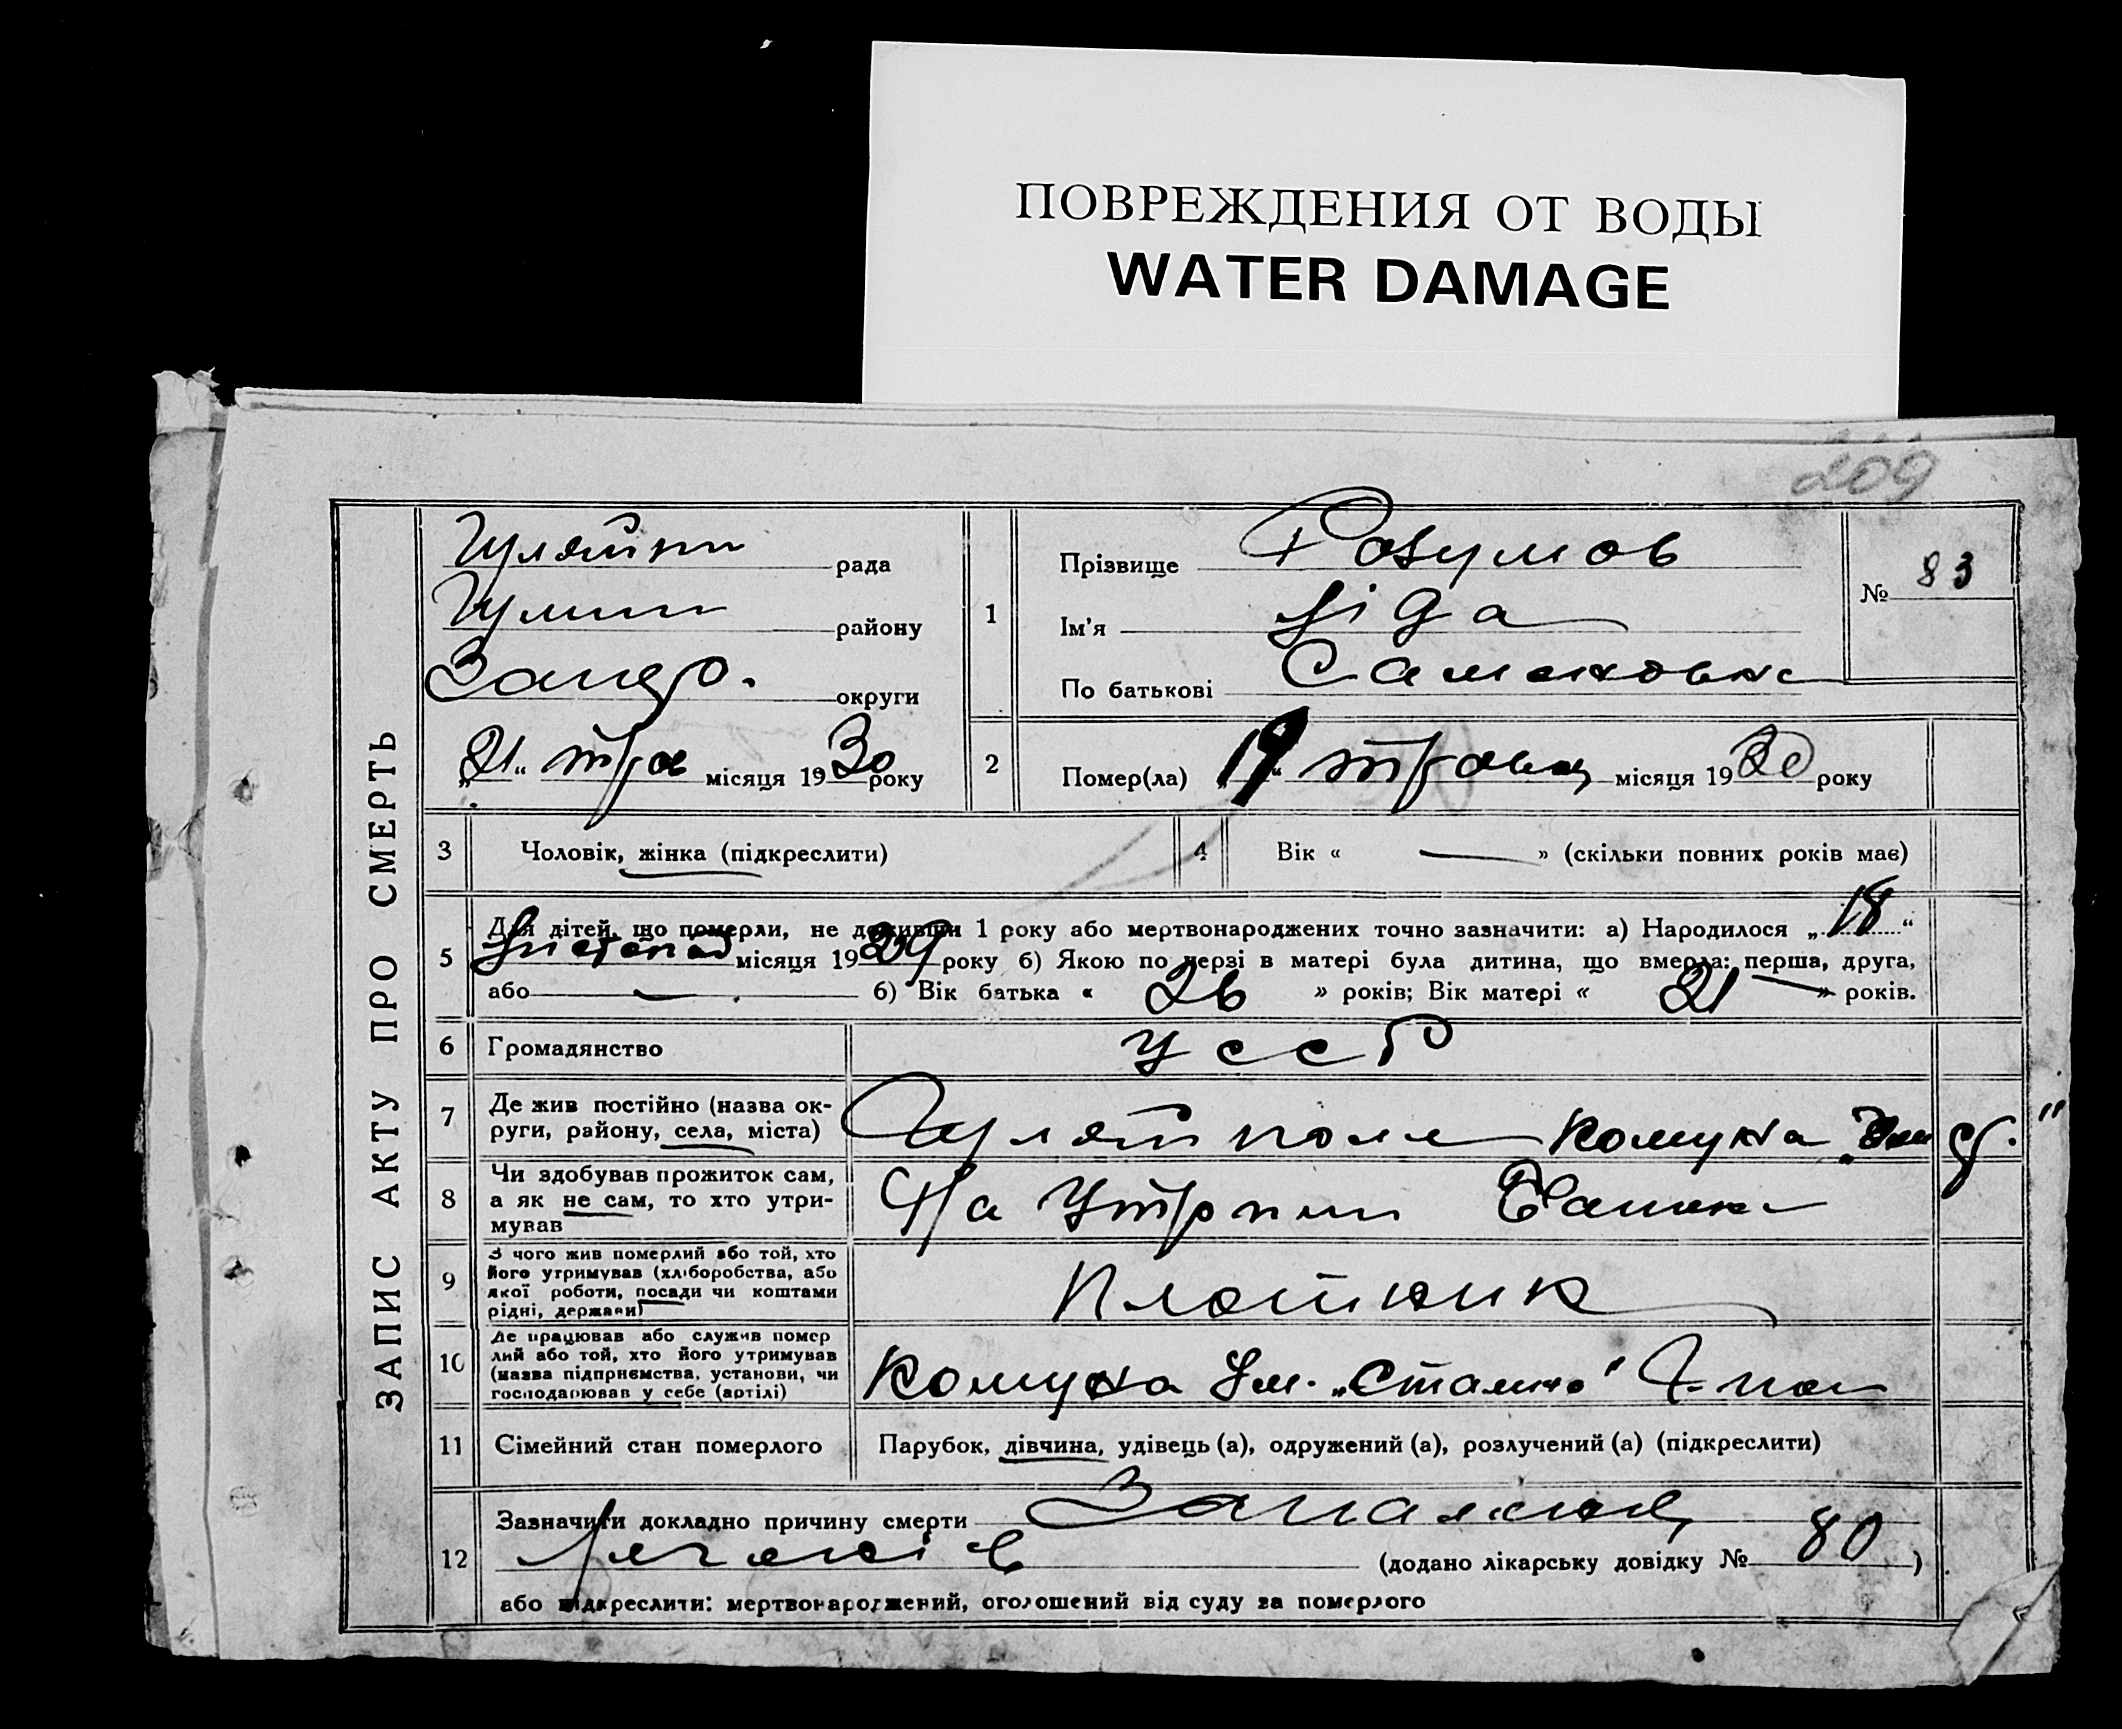 ПОВРЕЖДЕНИЯ ОТ ВОДЫ
WATER DAMAGE
209
ЗАПИС АКТУ ПРО СМЕРТЬ
рада
району
Запор. округи
„21“ трав місяця 1930 року
1
Прізвище Розумов
Ім'я Ліда
По батькові
№ 83
2
Помер(ла) „19“ травня місяця 1930 року
3 Чоловік, жінка (підкреслити)
4 Вік « — » (скільки повних років має)
5 Для дітей, що померли, не доживши 1 року або мертвонароджених точно зазначити: а) Народилося „18“
Листопад місяця 1929 року б) Якою по черзі в матері була дитина, що вмерла: перша, друга,
або — б) Вік батька « 26 » років; Вік матері « 21 » років.
6 Громадянство УССР
7 Де жив постійно (назва ок-
руги, району, села, міста)
Гуляйполе Комуна
8 Чи здобував прожиток сам,
а як не сам, то хто утри-
мував
На Утрим Батька
9 З чого жив померлий або той, хто
його утримував (хліборобства, або
якої роботи, посади чи коштами
рідні, держави)
Плотник
10 Де працював або служив помер
лий або той, хто його утримував
(назва підприємства, установи, чи
господарював у себе (артілі)
Комуна Ім. „Сталіна" Г-пол
11 Сімейний стан померлого Парубок, дівчина, удівець (а), одружений (а), розлучений (а) (підкреслити)
12 Зазначити докладно причину смерти Запалення
легенів (додано лікарську довідку № 80)
або підкреслити: мертвонароджений, оголошений від суду за померлого